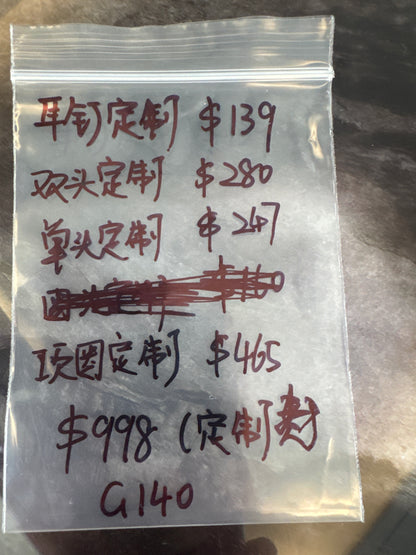 耳钉定制 $139
双头定制 $280
单头定制 $247
项圈定制 $465
$998 (定制费
G140